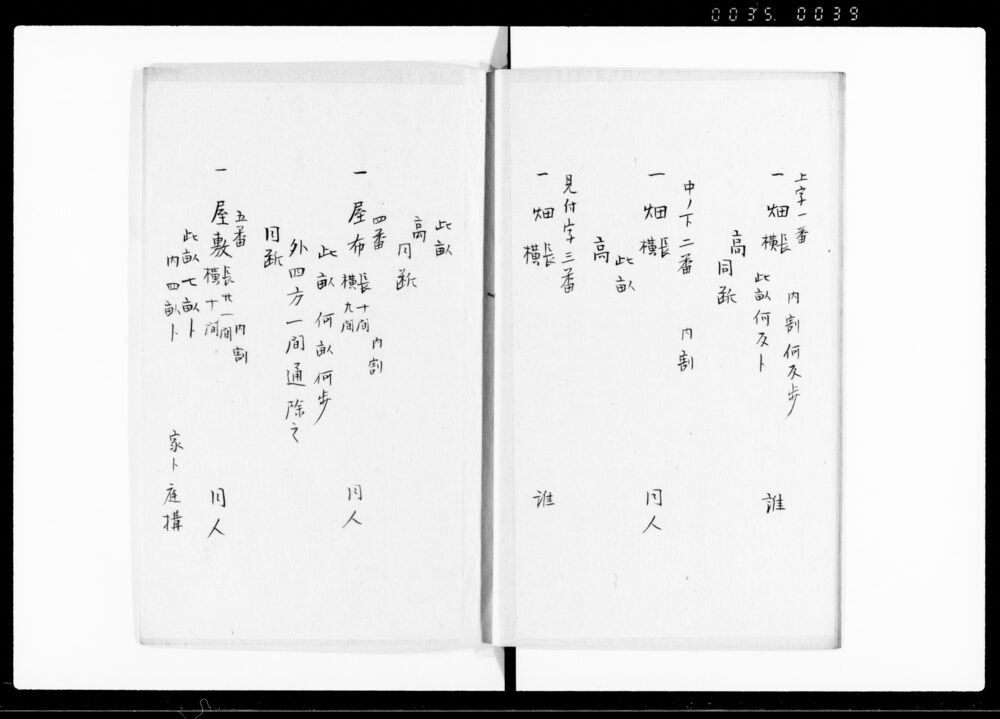 0035. 0039
上字一番 内割何反歩
一 畑 長横 誰
此畝何反ト
高同断
中ノ下二番 内割
一 畑 長横 同人
此畝
高
見付字三番
一 畑 長横 誰
此畝
高同断
四番 内割
一 屋布 長十間横九間 同人
此畝何畝何歩
外四方一間通除之
同断
五番 内割
一 屋敷 長廿一間横十間 同人
此畝七畝ト
内四畝ト 家ト庭構